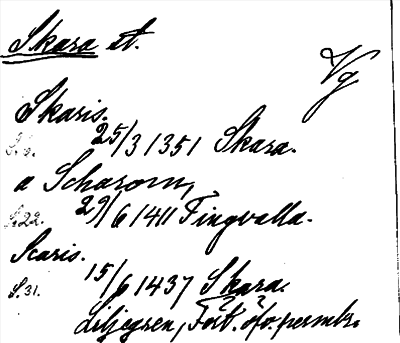 Skara st.
Vg
Skaris.
S. 6. 25/3 1351 Skara.
a Scharom,
S. 22. 29/6 1411 Tingvalla.
Scaris.
S. 31. 15/6 1437 Skara.
Liljegren, Fört. öfv. permbr.